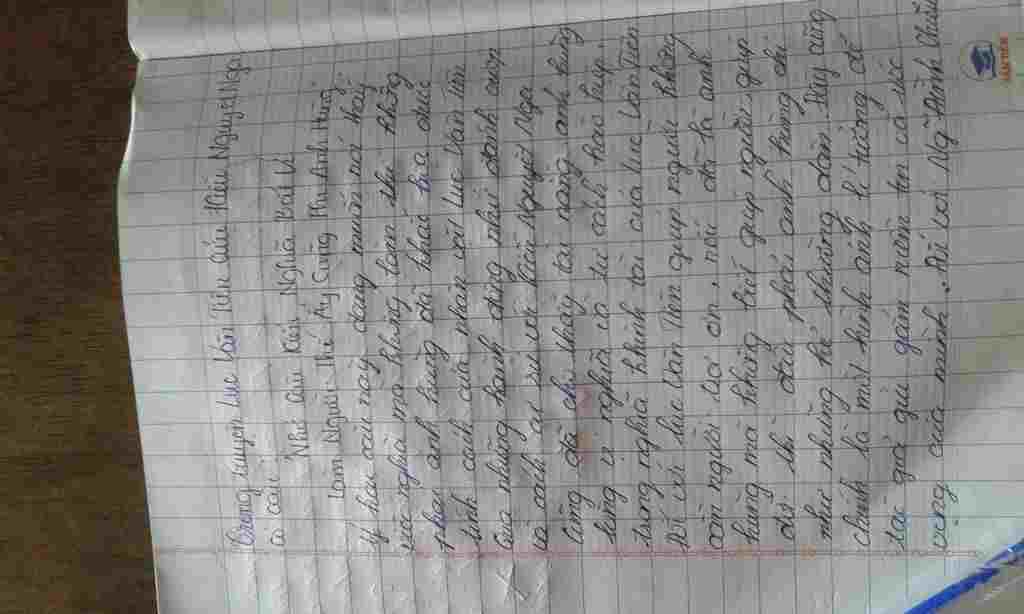 Trong truyện Lục Vân Tiên cứu Kiều Nguyệt Nga
có câu
Nhớ câu kiến nghĩa bất vi
Làm người thế ấy cũng phi anh hùng
Ý hai câu này đang muốn nói thấy
việc nghĩa mà không làm thì không
phải anh hùng đã khắc họa được
tính cách của nhân vật Lục Vân Tiên
Qua những hành động như đánh cướp
và cách cư với Kiều Nguyệt Nga
cũng đã cho thấy tài năng anh hùng
từng vị nghĩa và tư cách hào hiệp,
trọng nghĩa khinh tài của Lục Vân Tiên
Đối với Lục Vân Tiên giúp người không
cần người trả ơn, nói đã là anh
hùng mà không biết giúp người gặp
thì đâu phải anh hùng chi
như những kẻ thường dân. Đây cũng
chính là một hình ảnh lí tưởng để
tác giả gửi gắm niềm tin và ước
vọng của mình. Đối với Ng Đình Chiểu